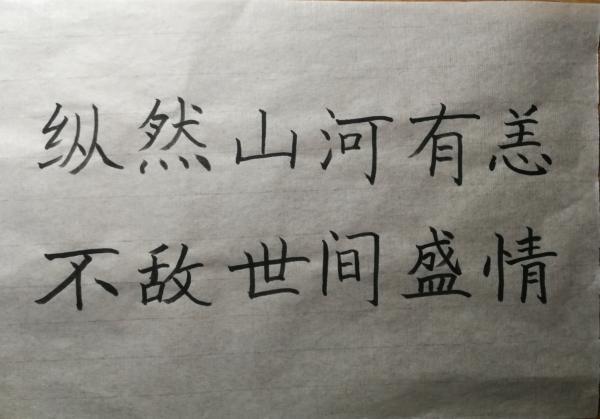 纵然山河有恙
不敌世间盛情